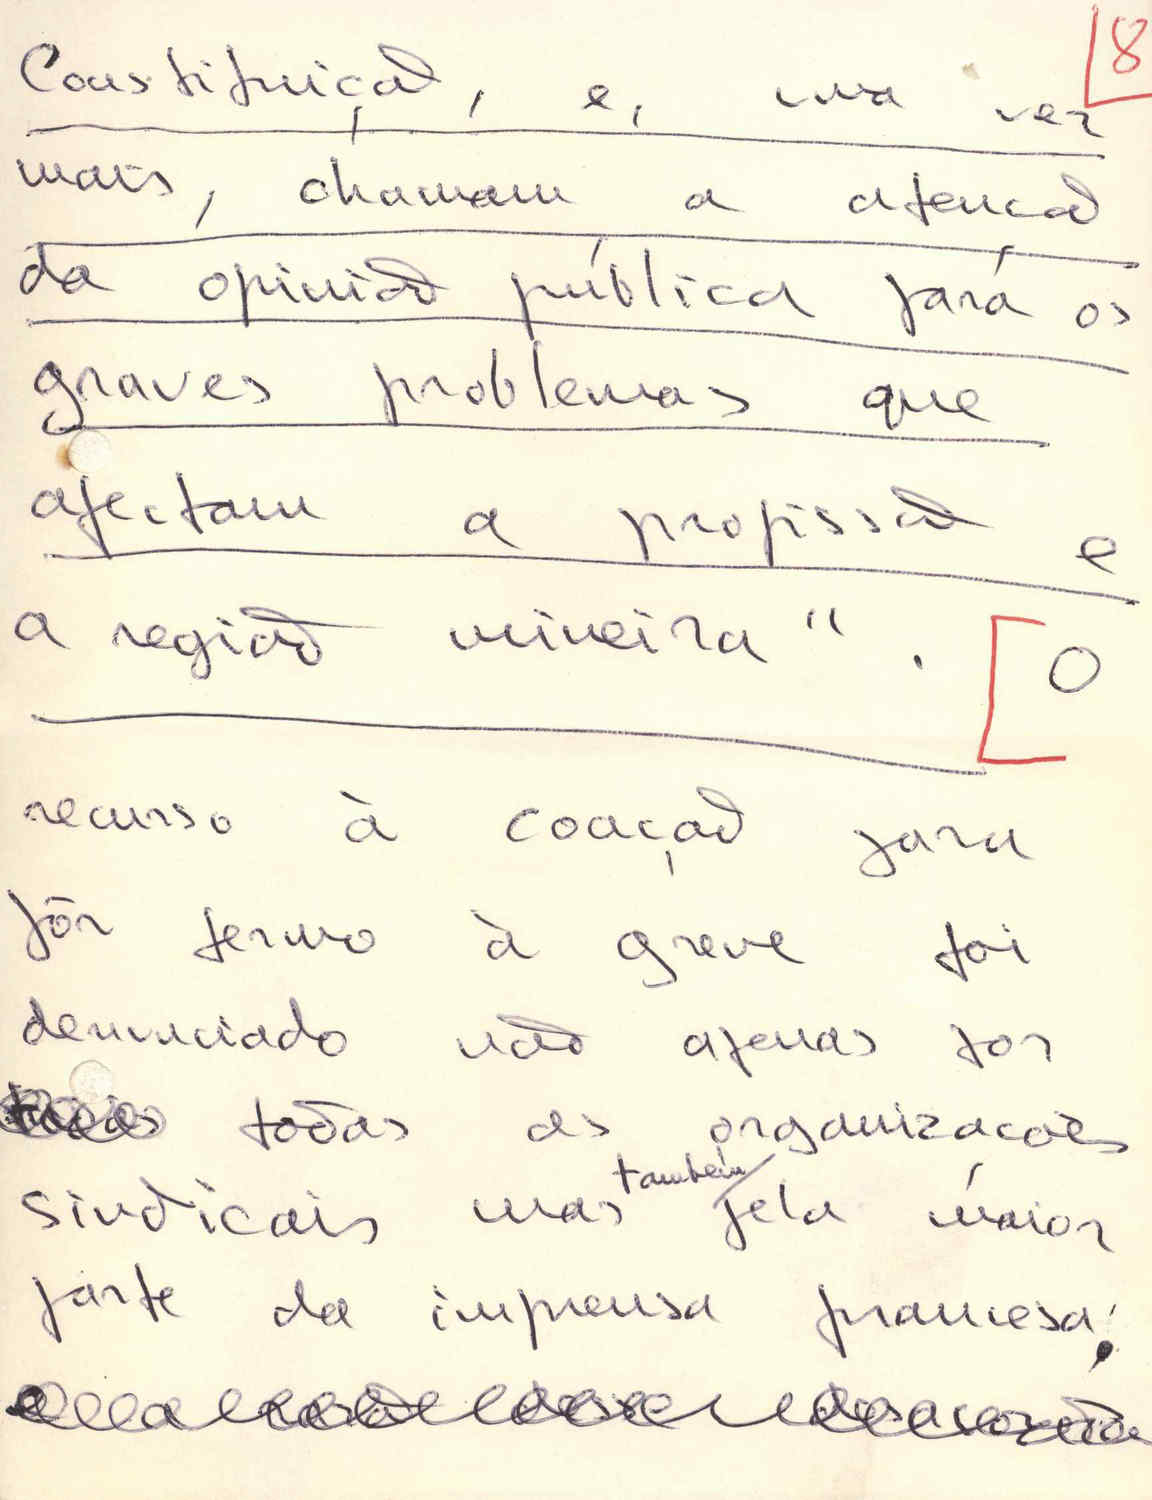 8
Constituição, e, uma vez
mais, chamam a atencão
da opinião pública pará os
graves problemas que
afectam a profissão e
a região mineira". O
recurso à coação para
pôr termo à greve foi
denunciado não apenas por
todas as organizacões
sindicais mas também pela maior
parte da imprensa francesa;